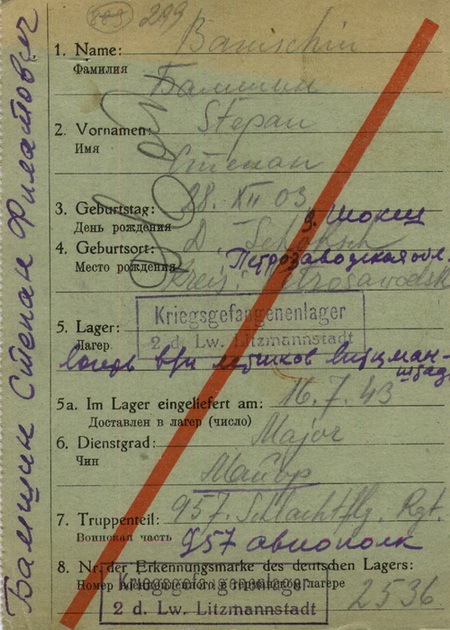 299
1. Name: Bamschin
Фамилия
Бамшин
2. Vornamen: Stepan
Имя
Степан
3. Geburtstag: 28. XII 03
День рождения
д. Шокш
4. Geburtsort: D. Schoksch
Петрозаводская обл.
Место рождения Kreis: Petrosawodsk
Kriegsgefangenenlager
2 d. Lw. Litzmannstadt
5. Lager:
Лагерь
Лагерь в/пл летчиков Лицман-
штадт
5a. Im Lager eingeliefert am: 16.7.43
Доставлен в лагерь (число)
6. Dienstgrad: Major
Чин
Майор
7. Truppenteil: 957. Schlachtflg. Rgt.
Воинская часть 957 авиополк
8. Nr. der Erkennungsmarke des deutschen Lagers:
Номер военнопленного в германском лагере 2536
Kriegsgefangenenlager
2 d. Lw. Litzmannstadt
Бамшин Степан Филатович